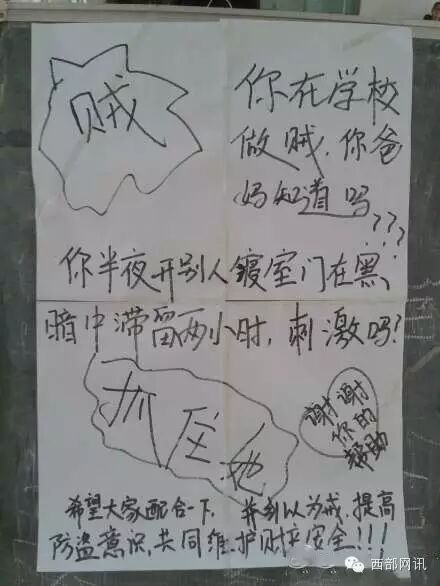 贼
你在学校
做贼，你爸
妈知道吗
???
你半夜开别人寝室门在黑
暗中滞留两小时，刺激吗?
抓住他
谢谢
你的
帮助
希望大家配合一下，并引以为戒，提高
防盗意识，共同维护财产安全!!!
西部网讯